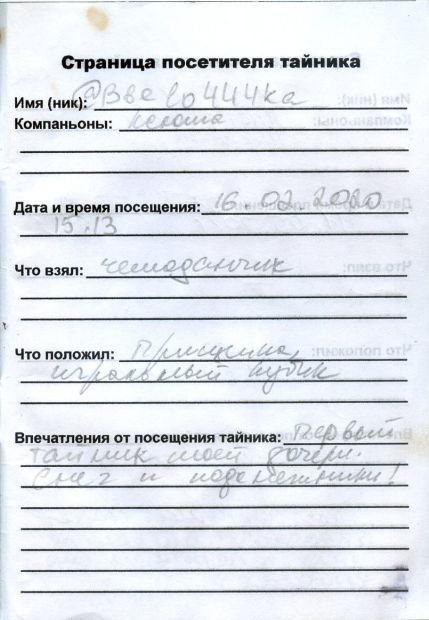 Страница посетителя тайника
Имя (ник):
Компаньоны: Ксюша
Дата и время посещения: 16.02.2020
15:13
Что взял: чемоданчик
Что положил:
игральный кубик
Впечатления от посещения тайника: Первый
тайник моей дочери.
Снег и подснежники!